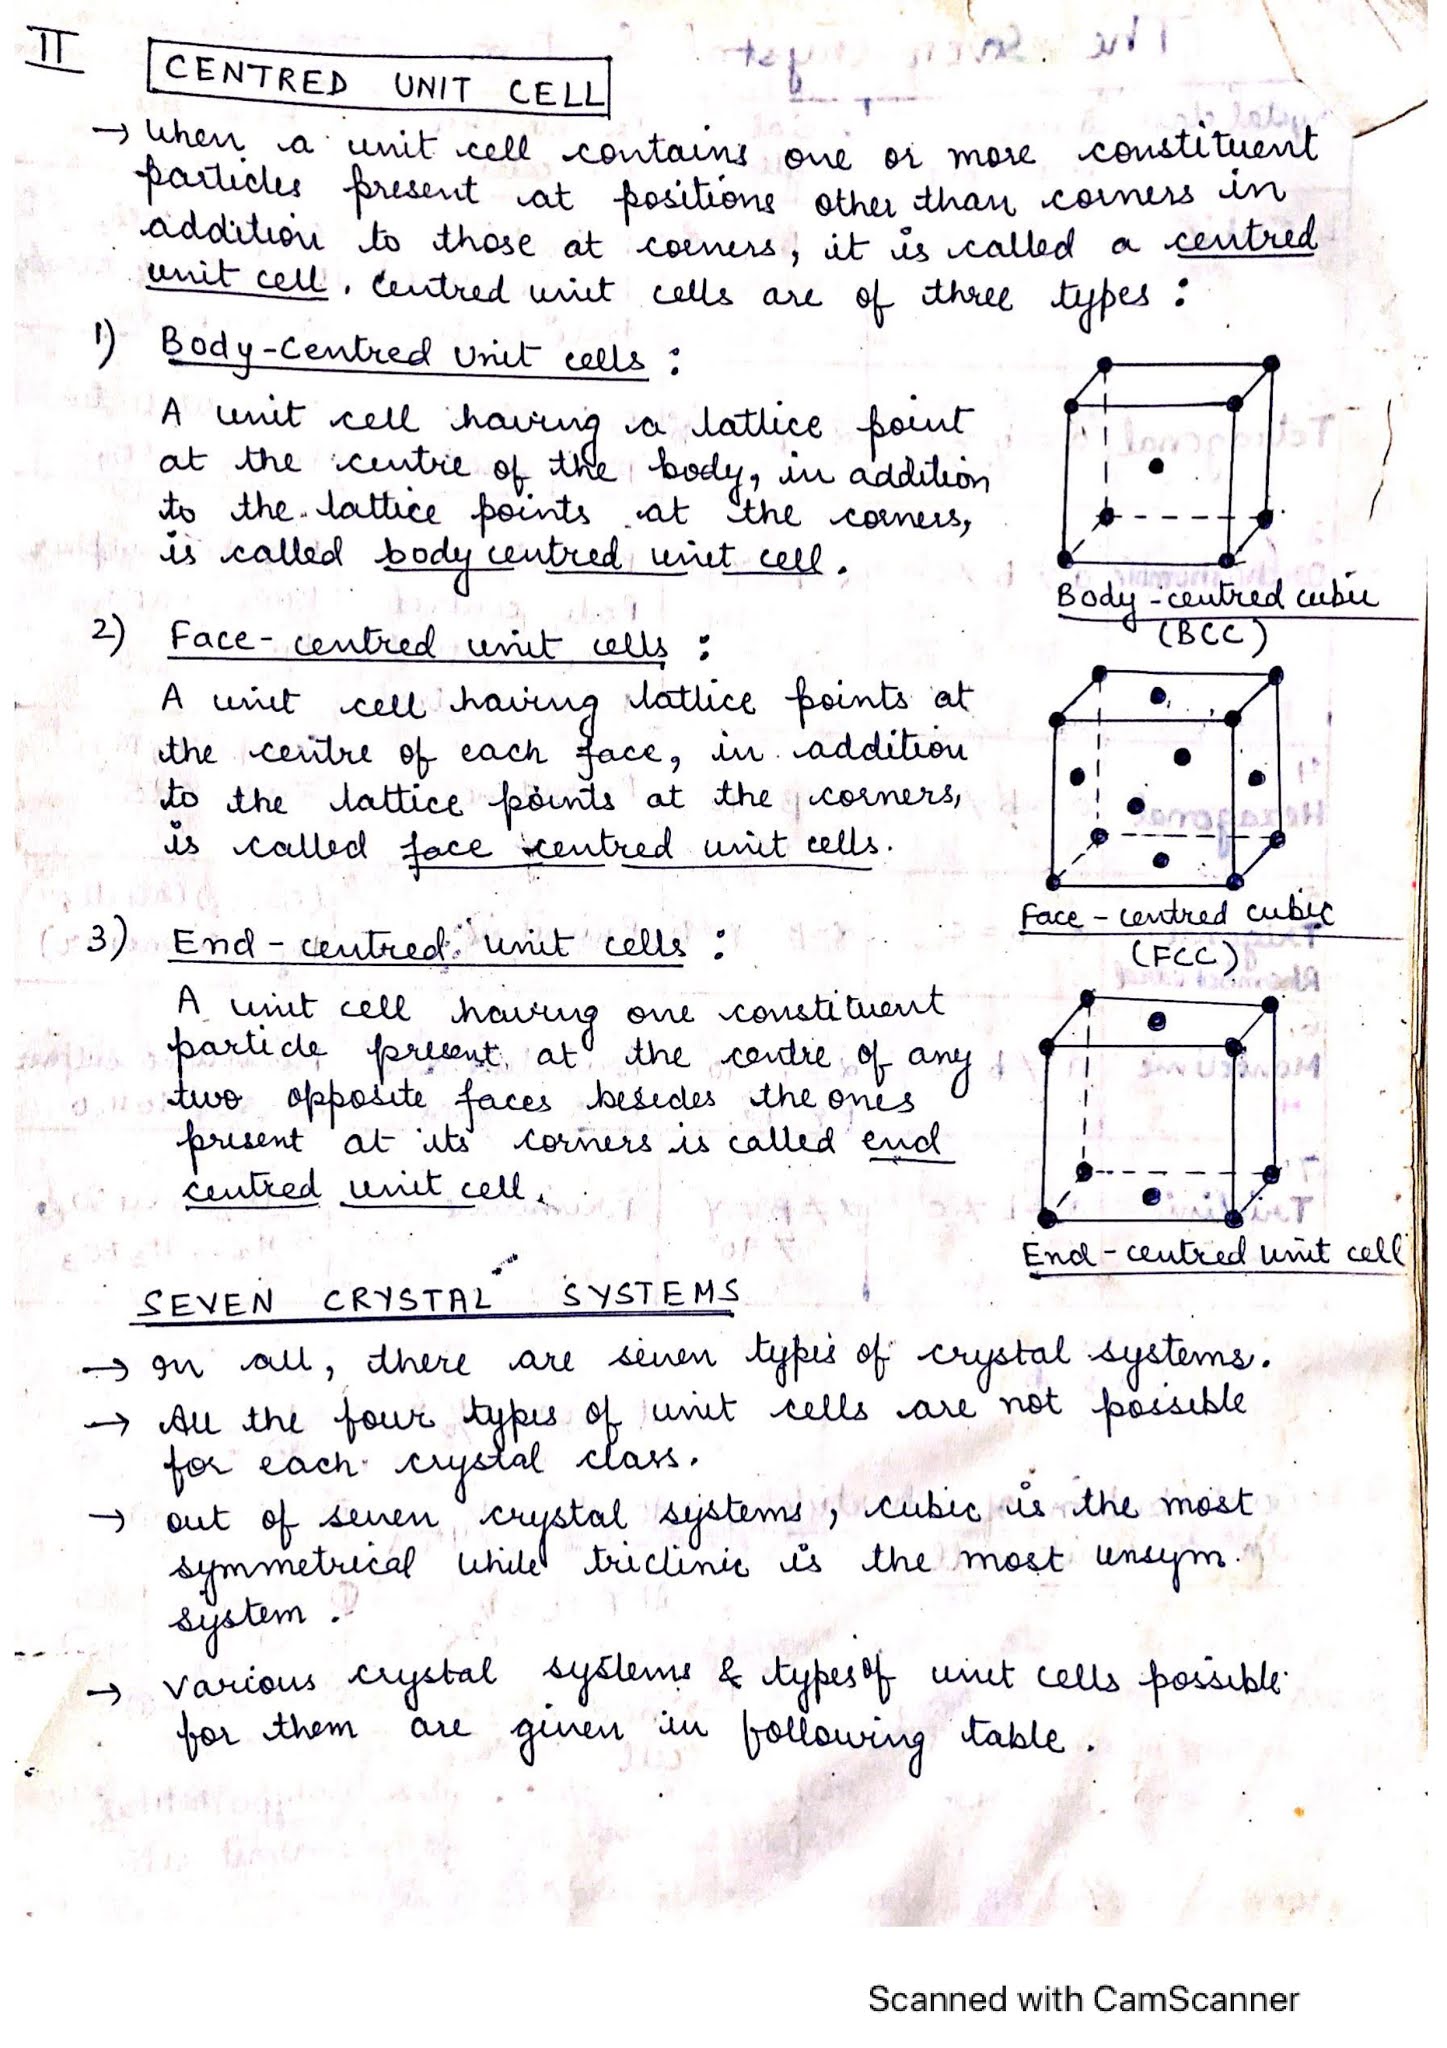 II CENTRED UNIT CELL
→ When a unit cell contains one or more constituent
particles present at positions other than corners in
addition to those at corners, it is called a centred
unit cell. Centred unit cells are of three types :
1) Body-Centred Unit cells :
A unit cell having a lattice point
at the centre of the body, in addition
to the lattice points at the corners,
is called body centred unit cell.
Body-centred cubic
(BCC)
2) Face-centred unit cells :
A unit cell having lattice points at
the centre of each face, in addition
to the lattice points at the corners,
is called face centred unit cells.
Face-centred cubic
(FCC)
3) End-centred unit cells :
A unit cell having one constituent
particle present at the centre of any
two opposite faces besides the ones
present at its corners is called end
centred unit cell.
End-centred unit cell
SEVEN CRYSTAL SYSTEMS
→ In all, there are seven types of crystal systems.
→ All the four types of unit cells are not possible
for each crystal class.
→ out of seven crystal systems, cubic is the most
symmetrical while triclinic is the most unsym.
system.
→ Various crystal systems & types of unit cells possible
for them are given in following table.
Scanned with CamScanner